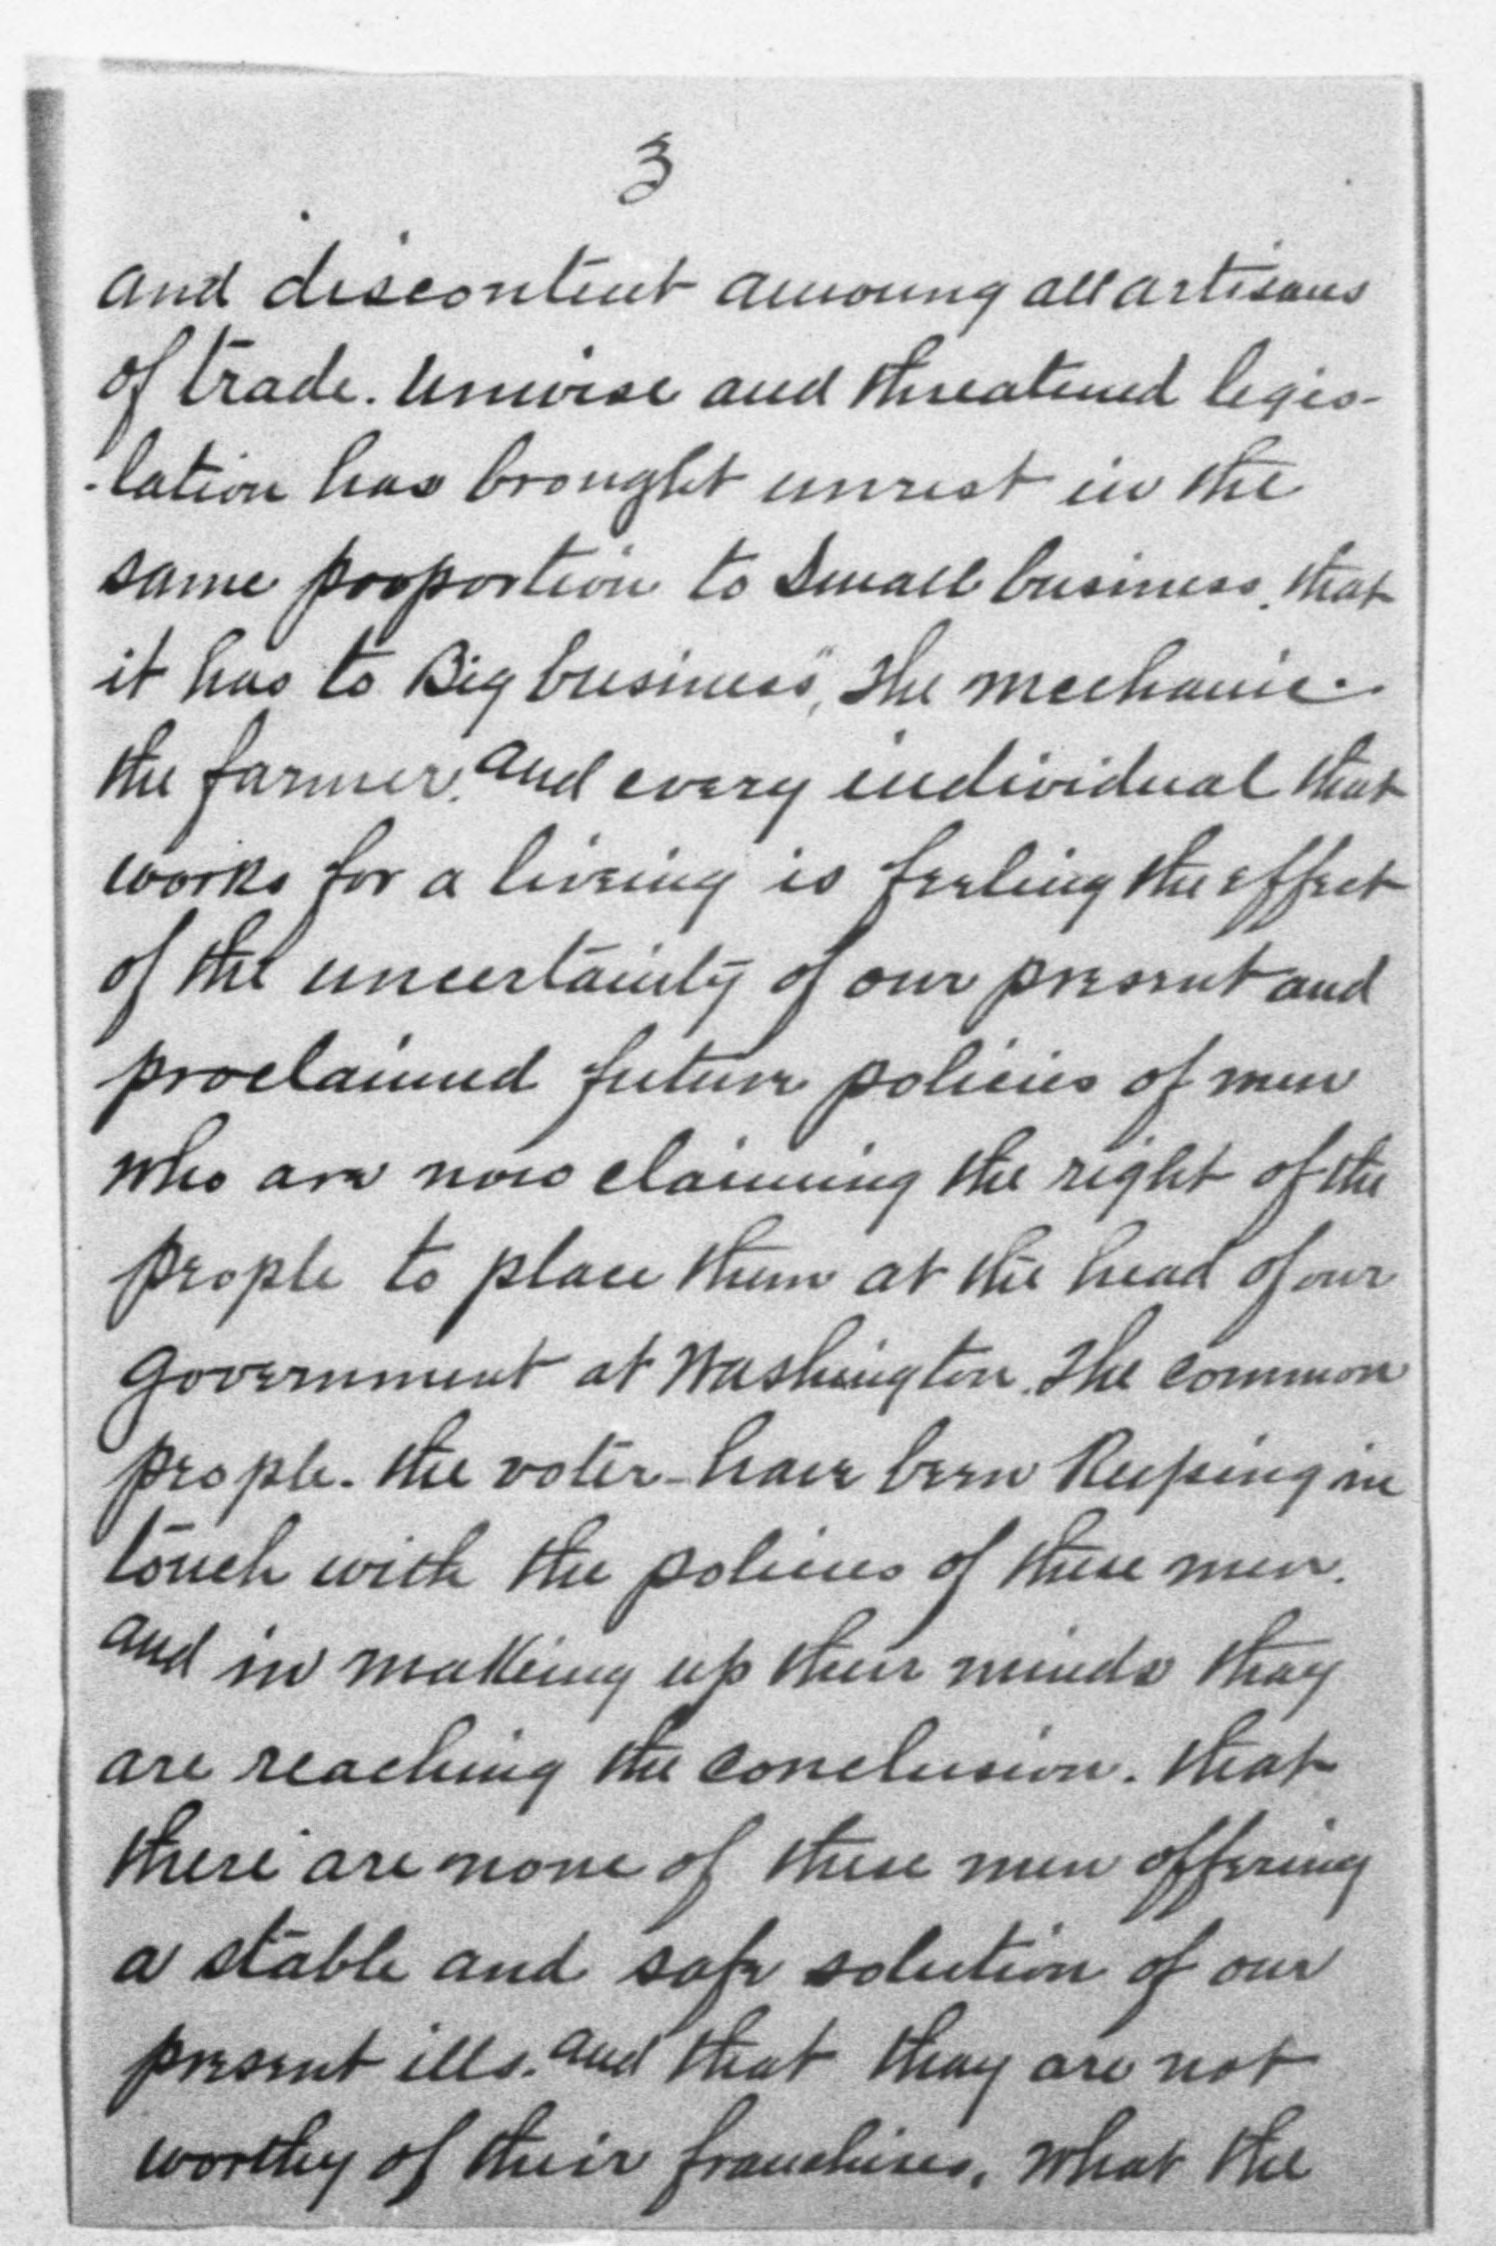 3
and discontent amoung all artisans
of trade. Unwise and threatened legis-
-lation has brought unrest in the
same proportion to Small business. that
it has to Big business", The mechanic.
the farmer. and every individual that
works for a liveing is feeling the effect
of the uncertainty of our present and
proclaimed future policies of men
who are now claiming the right of the
people to place them at the head of our
government at Washington. The common
people. the voter - have been Keeping in
touch with the policies of these men.
and in making up their minds thay
are reaching the conclusion. that
there are none of these men offering
a stable and safe solution of our
present ills. and that thay are not
worthy of their franchises. What the